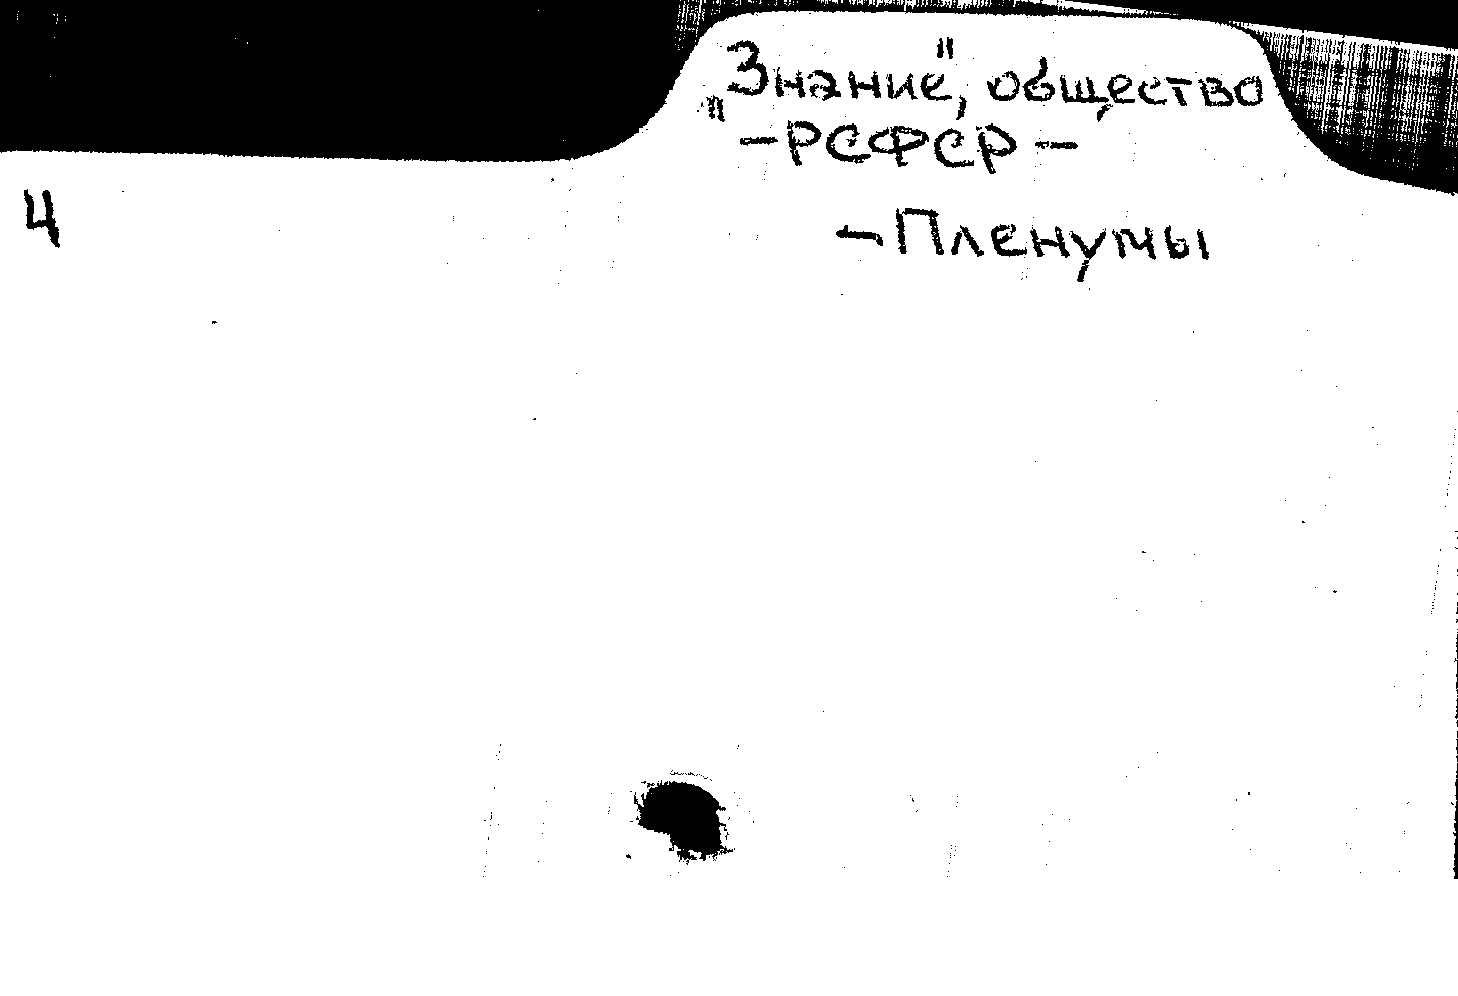 „Знание", общество
- РСФСР -
- Пленумы
4